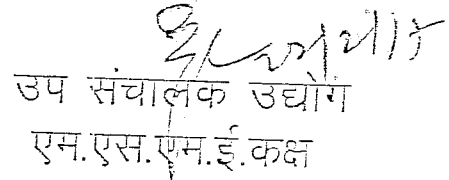 उप संचालक उद्योग
एम.एस.एम.ई.कक्ष